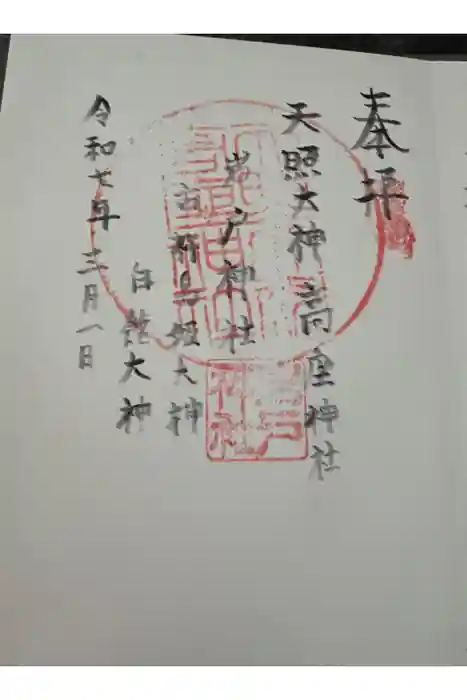 奉拝
天照大神高座神社
岩戸神社
市杵島姫大神
白飯大神
令和七年 三月一日